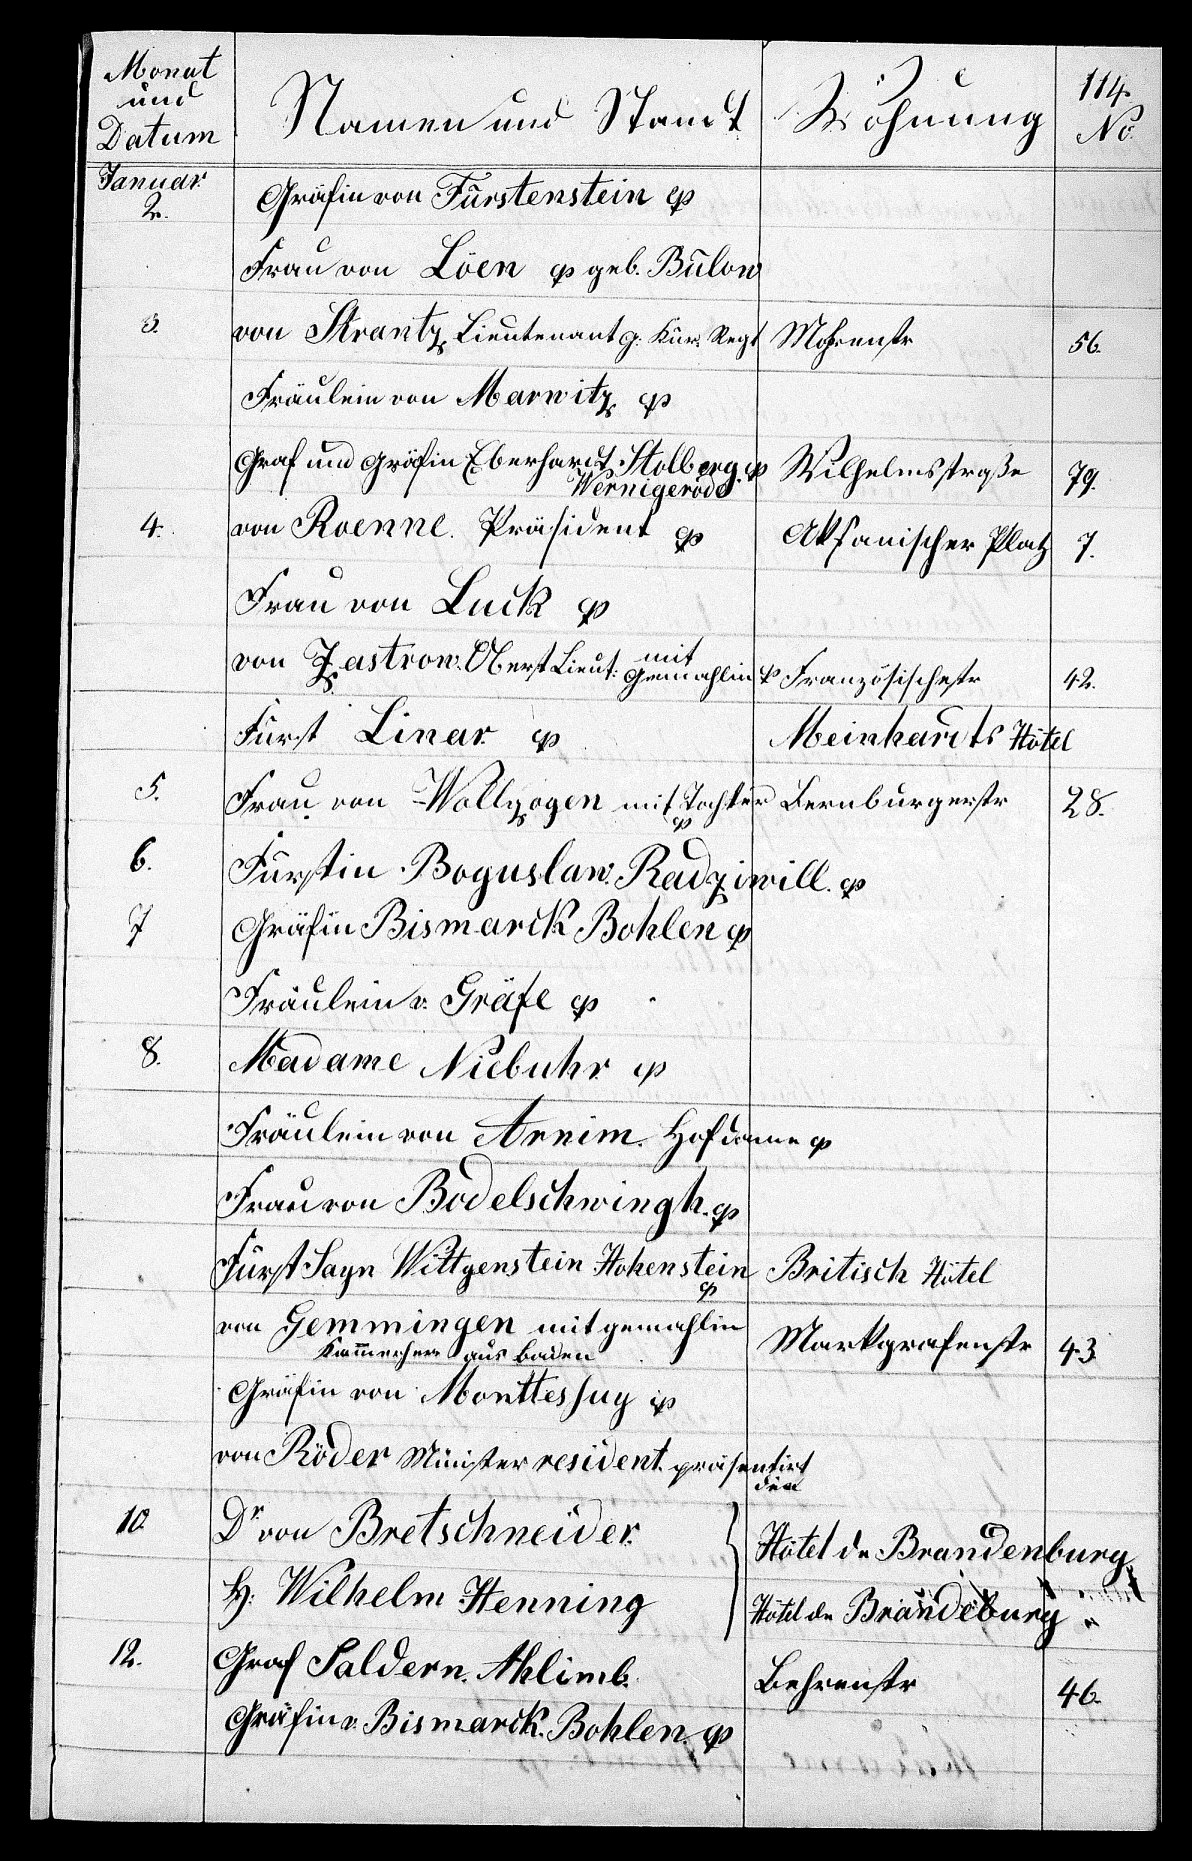 Monat und Datum Namen und Standt Wohnung 114. No.
Januar 2. Gräfin von Fürstenstein
Frau von Löen geb. Bülow
3. von Strantz, Lieutenant g: Kür. Regt Mohrenstr 56.
Fräulein von Marwitz
Graf und Gräfin Eberhardt Stolberg Wilhelmsstraße 79.
Wernigerode
4. von Roenne. Präsident Aksanischer Platz 7.
Frau von Luck
von Zastrow. Oberst Lieut: mit Gemahlin Französischestr 42.
Fürst Linar Meinhardts Hôtel
5. Frau von Wollzogen mit Tochter Bernburgerstr 28.
6. Fürstin Boguslaw. Radziwill.
7 Gräfin Bismarck Bohlen
Fräulein v. Gräfe
8. Madame Niebuhr
Fräulein von Arnim. Hofdame
Frau von Bodelschwingh.
Fürst Sayn Wittgenstein Hohenstein Britisch Hôtel
von Gemmingen mit gemahlin Markgrafenstr 43
Kammerherr aus baden
Gräfin von Monttessuy
von Röder Minister resident. präsentirt
den
10. Dr von Bretschneider. Hôtel de Brandenburg
H. Wilhelm Henning Hôtel de Brandeburg "
12. Graf Saldern. Ahlimb. Behrenstr 46.
Gräfin v. Bismarck. Bohlen.